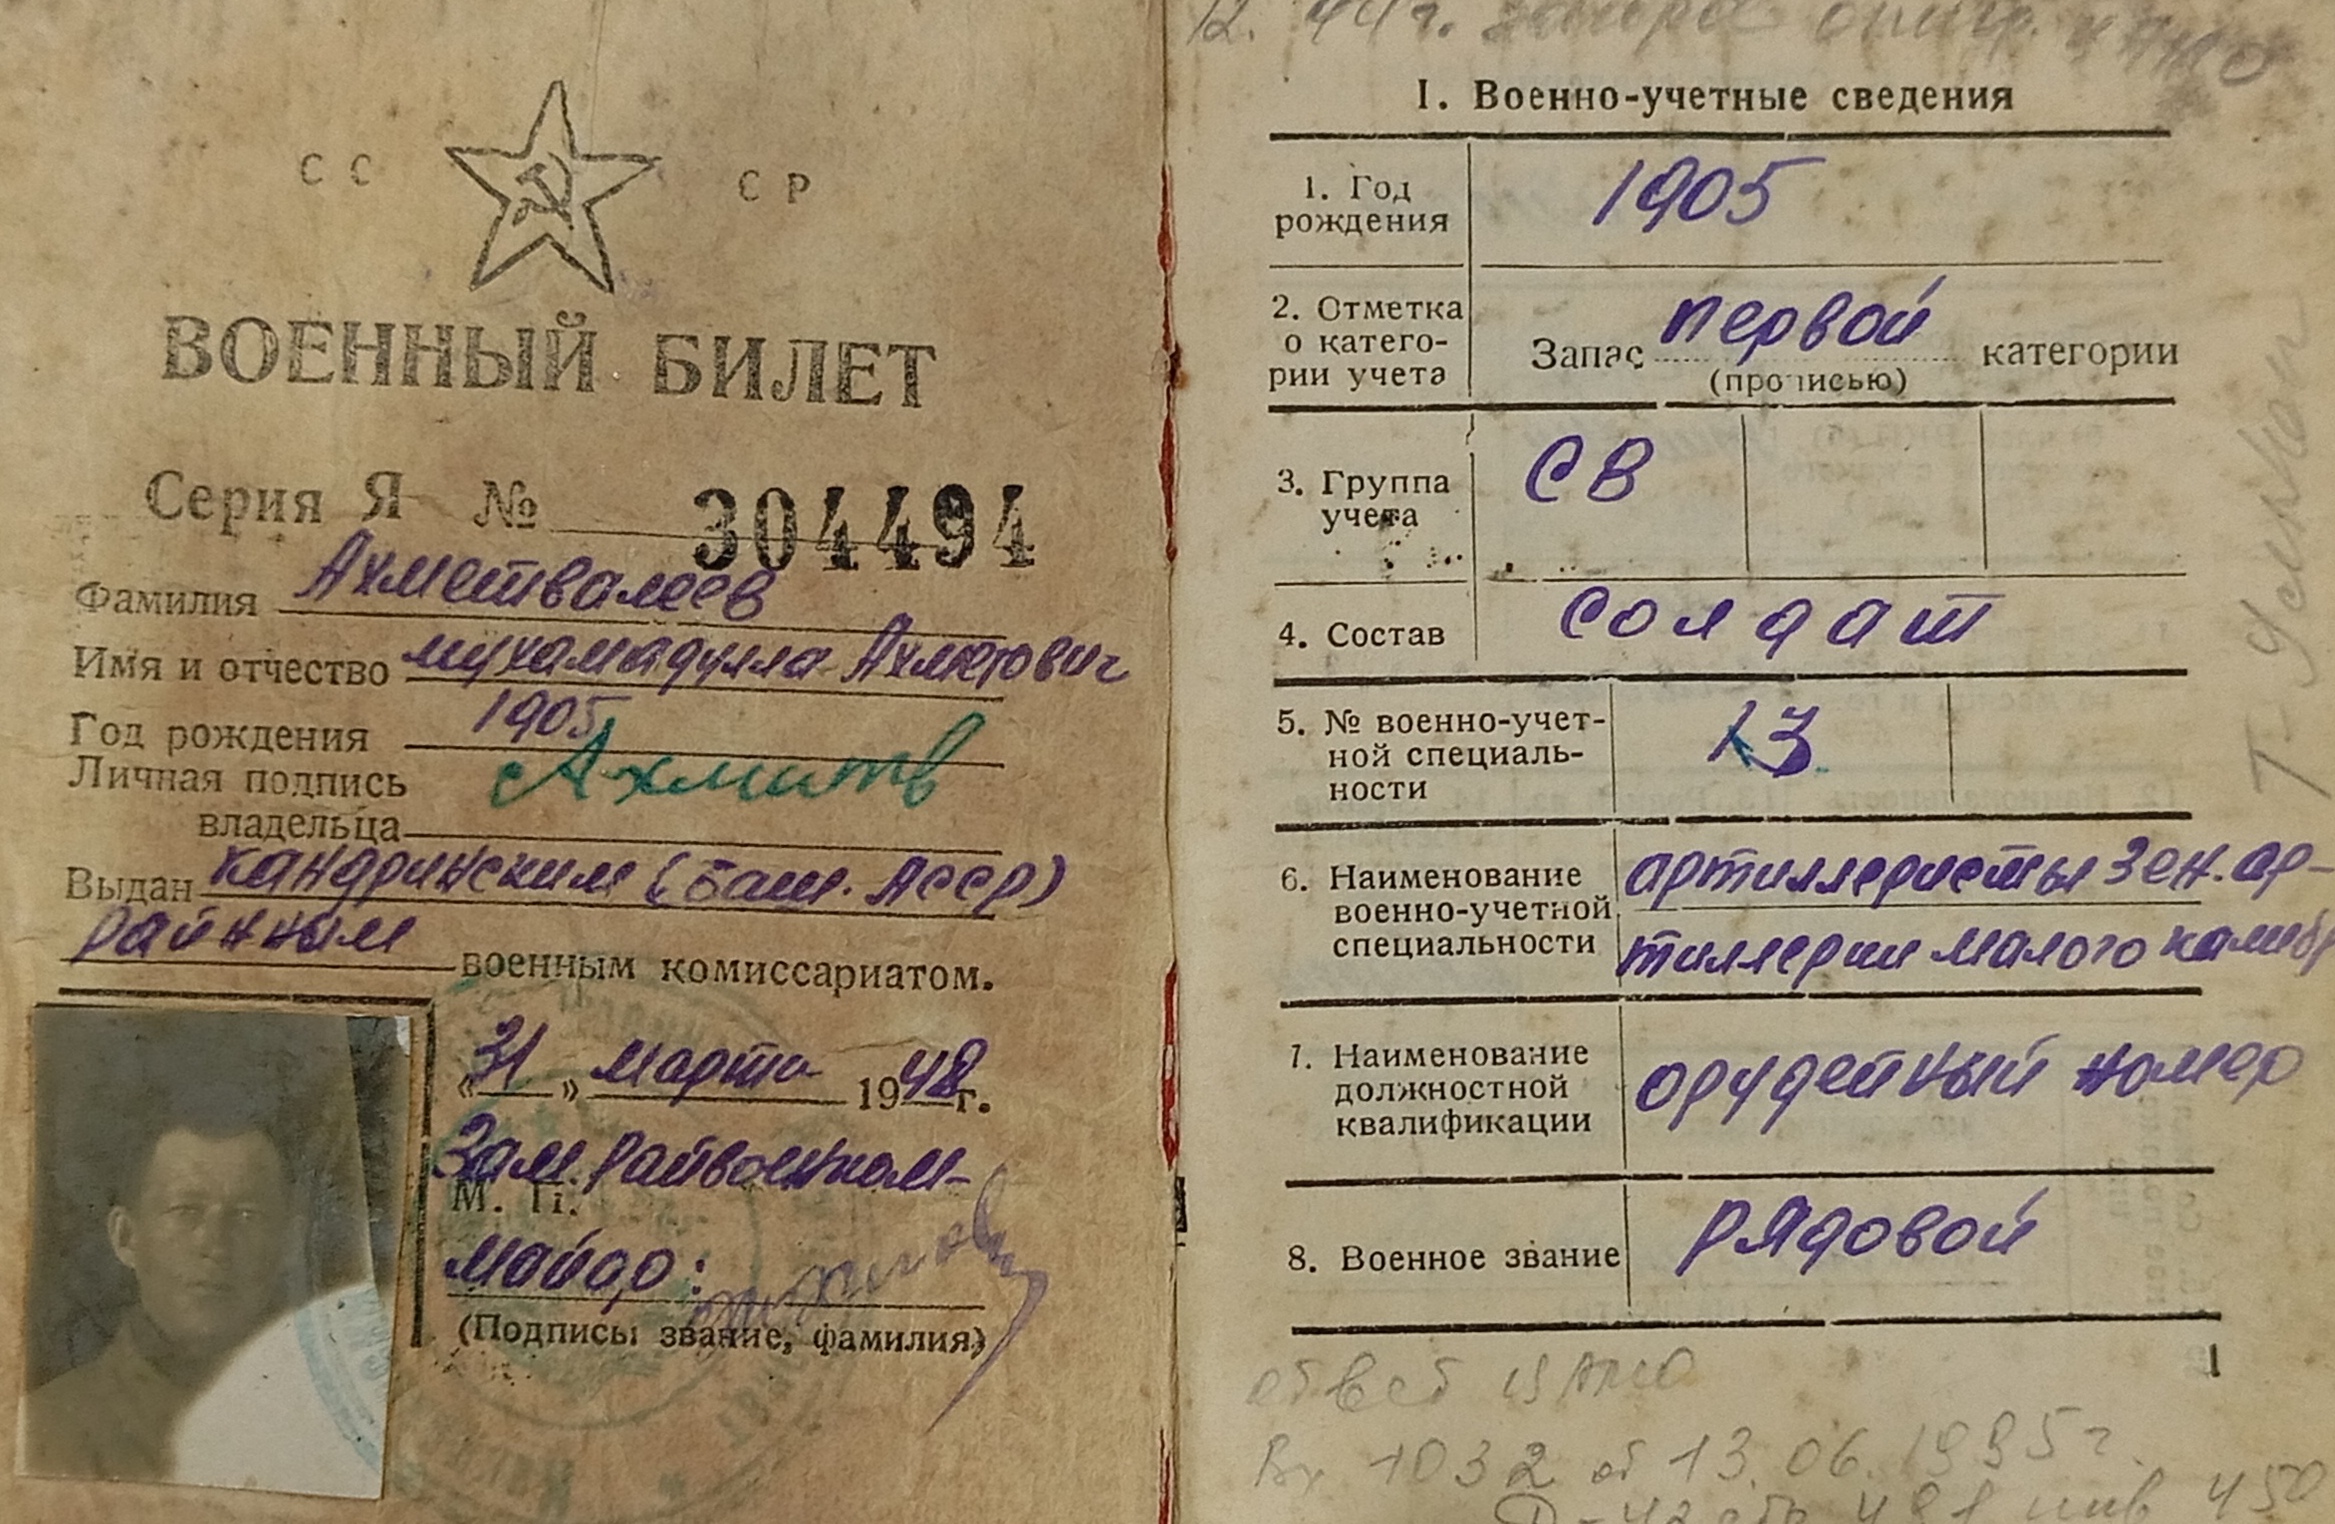 СС СР
ВОЕННЫЙ БИЛЕТ
Серия Я № 304494
Фамилия Ахметвалеев
Имя и отчество мухамадулла Ахметович
Год рождения 1905
Личная подпись
владельца Ахмитв
Выдан кандринским (Баш. АССР)
райнным военным комиссариатом.
«31» марта 1948 г.
Зам. Райвоенком-
М. П.
майор:
(Подпись, звание, фамилия)
I. Военно-учетные сведения
1. Год
рождения
1905
2. Отметка
о катего-
рии учета
Запас первой категории
(прописью)
3. Группа
учета
СВ
4. Состав
солдат
5. № военно-учет-
ной специаль-
ности
13
6. Наименование
военно-учетной
специальности
артиллеристы зен. ар-
тиллерии малого калибр
7. Наименование
должностной
квалификации
орудейный номер
8. Военное звание
рядовой
1
ответ ЦАМО
Вх 1032 от 13.06.1995 г.